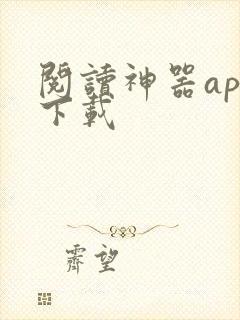 閱讀神器ap
下載
齊望